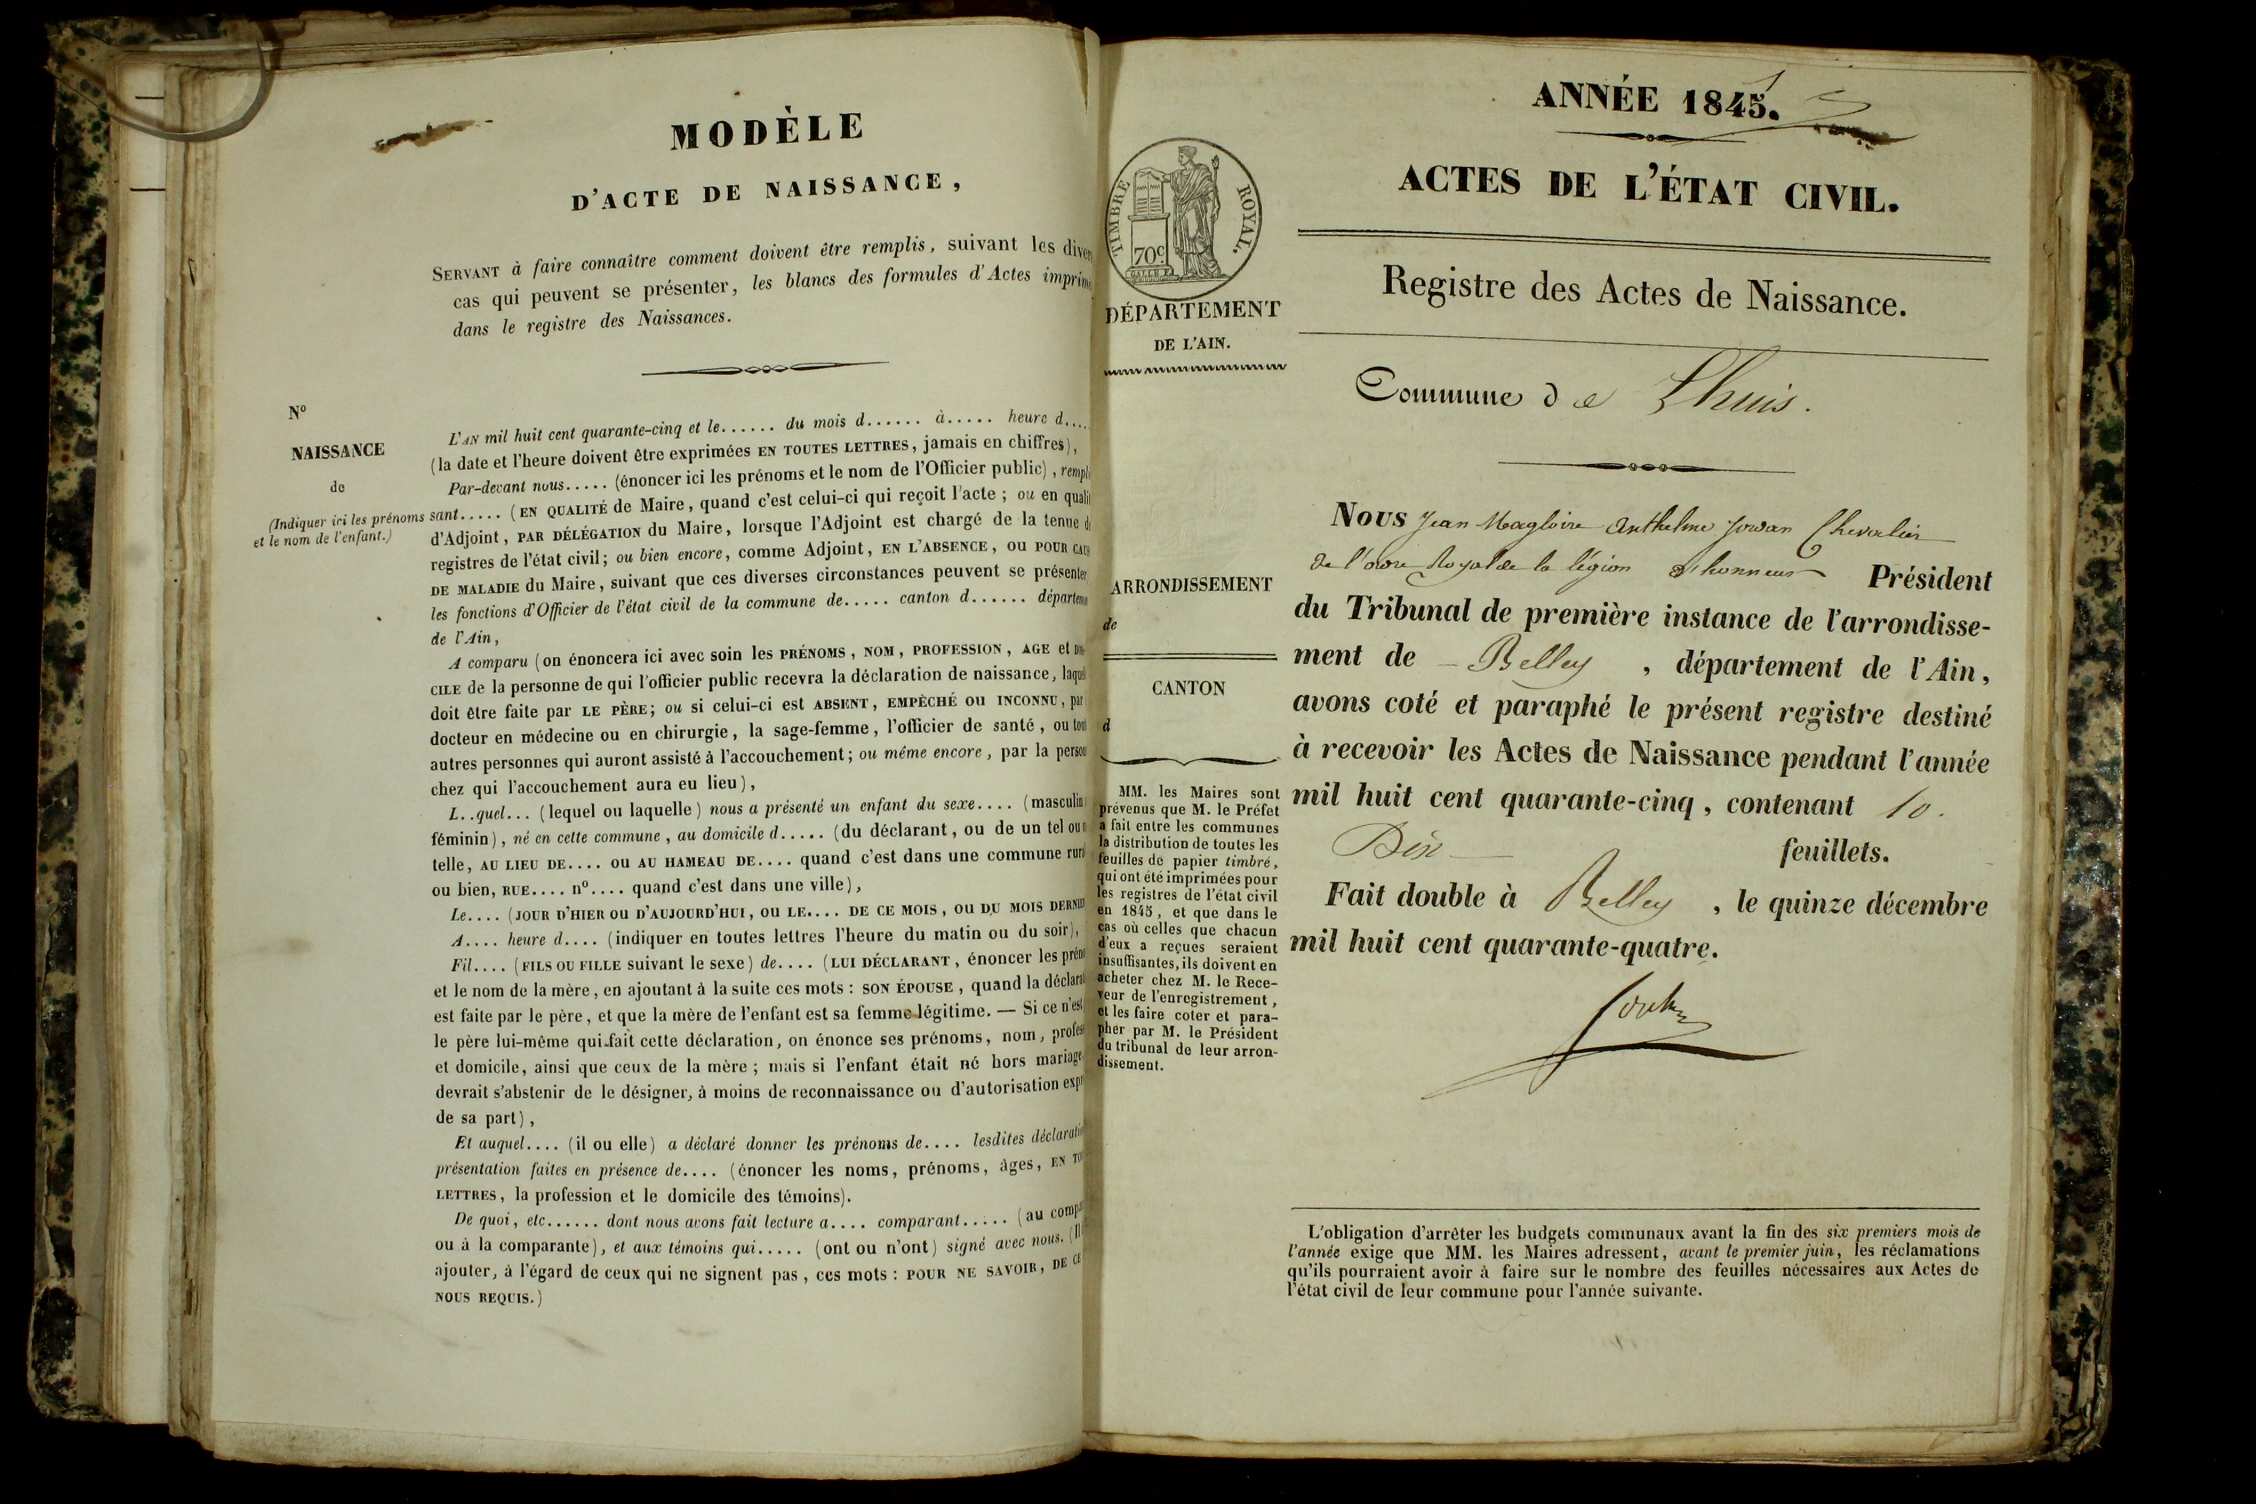 MODÈLE
D'ACTE DE NAISSANCE,
SERVANT à faire connaître comment doivent être remplis, suivant les
cas qui peuvent se présenter, les blancs des formules d'Actes
dans le registre des Naissances.
N°
NAISSANCE
de
(Indiquer ici les prénoms
et le nom de l'enfant.)
L'AN mil huit cent quarante-cinq et le...... du mois d...... à..... heure d.....
(la date et l'heure doivent être exprimées EN TOUTES LETTRES, jamais en chiffres),
Par-devant nous..... (énoncer ici les prénoms et le nom de l'Officier public),
sant..... (EN QUALITÉ de Maire, quand c'est celui-ci qui reçoit l'acte; ou en
d'Adjoint, PAR DÉLÉGATION du Maire, lorsque l'Adjoint est chargé de la tenue
registres de l'état civil; ou bien encore, comme Adjoint, EN L'ABSENCE, OU POUR
DE MALADIE du Maire, suivant que ces diverses circonstances peuvent se présenter
les fonctions d'Officier de l'état civil de la commune de..... canton d......
de l'Ain,
A comparu (on énoncera ici avec soin les PRÉNOMS, NOM, PROFESSION, AGE et
CILE de la personne de qui l'officier public recevra la déclaration de naissance,
doit être faite par LE PÈRE; ou si celui-ci est ABSENT, EMPÊCHÉ OU INCONNU, par
docteur en médecine ou en chirurgie, la sage-femme, l'officier de santé, ou
autres personnes qui auront assisté à l'accouchement; ou même encore, par la
chez qui l'accouchement aura eu lieu),
L..quel... (lequel ou laquelle) nous a présenté un enfant du sexe.... (masculin
féminin), né en cette commune, au domicile d..... (du déclarant, ou de un tel ou
telle, AU LIEU DE.... OU AU HAMEAU DE.... quand c'est dans une commune
ou bien, RUE.... n°.... quand c'est dans une ville),
Le.... (JOUR D'HIER OU D'AUJOURD'HUI, OU LE.... DE CE MOIS, OU DU MOIS
A.... heure d.... (indiquer en toutes lettres l'heure du matin ou du soir),
Fil.... (FILS OU FILLE suivant le sexe) de.... (LUI DÉCLARANT, énoncer les
et le nom de la mère, en ajoutant à la suite ces mots: SON ÉPOUSE, quand la
est faite par le père, et que la mère de l'enfant est sa femme légitime. — Si ce n'est
le père lui-même qui fait cette déclaration, on énonce ses prénoms, nom,
et domicile, ainsi que ceux de la mère; mais si l'enfant était né hors mariage
devrait s'abstenir de le désigner, à moins de reconnaissance ou d'autorisation
de sa part),
Et auquel.... (il ou elle) a déclaré donner les prénoms de.... lesdites
présentation faites en présence de.... (énoncer les noms, prénoms, âges, EN
LETTRES, la profession et le domicile des témoins).
De quoi, etc...... dont nous avons fait lecture a.... comparant..... (au
ou à la comparante), et aux témoins qui..... (ont ou n'ont) signé avec nous.
ajouter, à l'égard de ceux qui ne signent pas, ces mots: POUR NE SAVOIR, DE CE
NOUS REQUIS.)
ANNÉE 1845.
ACTES DE L'ÉTAT CIVIL.
Registre des Actes de Naissance.
TIMBRE ROYAL.
70c
DÉPARTEMENT
DE L'AIN.
ARRONDISSEMENT
de
CANTON
d
MM. les Maires sont
prévenus que M. le Préfet
a fait entre les communes
la distribution de toutes les
feuilles de papier timbré,
qui ont été imprimées pour
les registres de l'état civil
en 1845, et que dans le
cas où celles que chacun
d'eux a reçues seraient
insuffisantes, ils doivent en
acheter chez M. le Rece-
veur de l'enregistrement,
et les faire coter et para-
pher par M. le Président
du tribunal de leur arron-
dissement.
Commune de Lhuis.
Nous Jean Magloire Anthelme Jowan Chevalier
de l'ordre Royal de la légion d'honneur Président
du Tribunal de première instance de l'arrondisse-
ment de Belley, département de l'Ain,
avons coté et paraphé le présent registre destiné
à recevoir les Actes de Naissance pendant l'année
mil huit cent quarante-cinq, contenant 10.
Dix feuillets.
Fait double à Belley, le quinze décembre
mil huit cent quarante-quatre.
L'obligation d'arrêter les budgets communaux avant la fin des six premiers mois de
l'année exige que MM. les Maires adressent, avant le premier juin, les réclamations
qu'ils pourraient avoir à faire sur le nombre des feuilles nécessaires aux Actes de
l'état civil de leur commune pour l'année suivante.